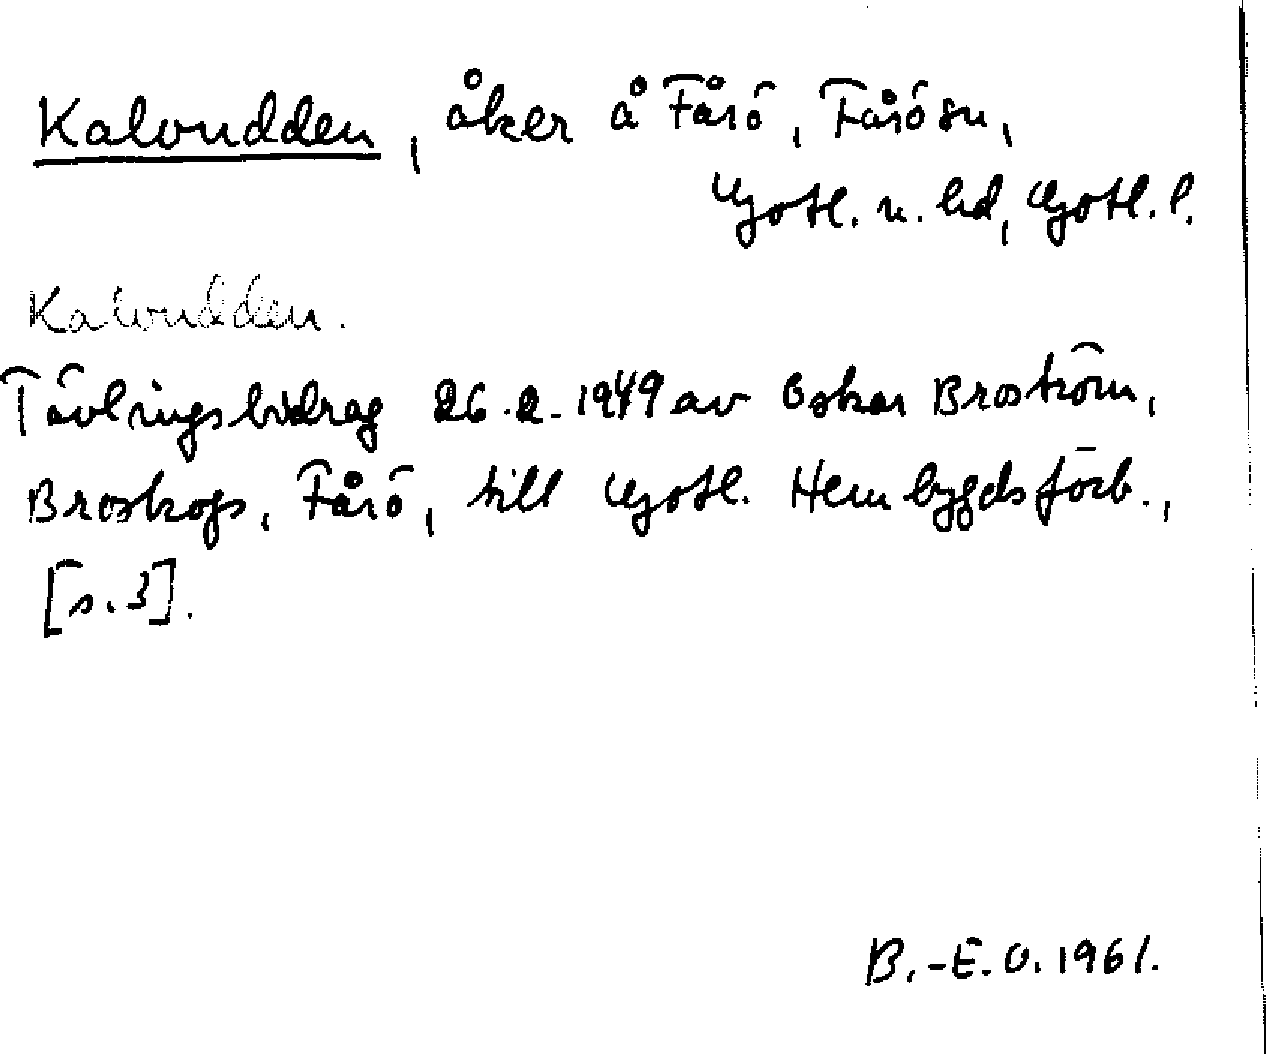 Kalvudden, åker å Fårö, Fårö sn,
Gotl. n. hd, Gotl. l.
Kalvudden.
Tävlingsbidrag 26.2.1949 av Oskar Broström,
Broskogs, Fårö, till Gotl. Hembygdsförb.,
[s. 3].
B.-E. O. 1961.